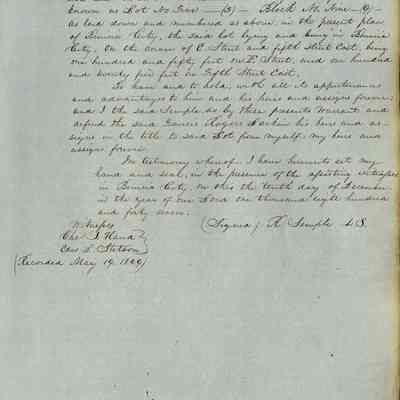 known as Lot No Five — (5) — Block No. Nine — (9) —
as laid down and numbered as above, in the present plan
of Benicia City, the said lot lying and being in Benicia
City. On the corner of C Street and fifth Street East, being
one hundred and fifty feet on C Street, and one hundred
and twenty five feet on Fifth Street East.
To have and to hold, with all its appurtenances
and advantages to him and his heirs and assigns forever;
and I the said Semple, do by these presents Warrant and
defend the said Francis Rogers Larkin his heirs and as-
signs in the title to said Lot from myself, my heirs and
assigns forever.
In testimony whereof. I have hereunto set my
hand and seal, in the presence of the attesting witnesses
in Benicia City, on this the tenth day of December
in the year of our Lord one thousand eight hundred
and forty seven.
Witnesses (Signed) R. Semple L.S.
Chas. L. Stetson
(Recorded May 19. 1849)